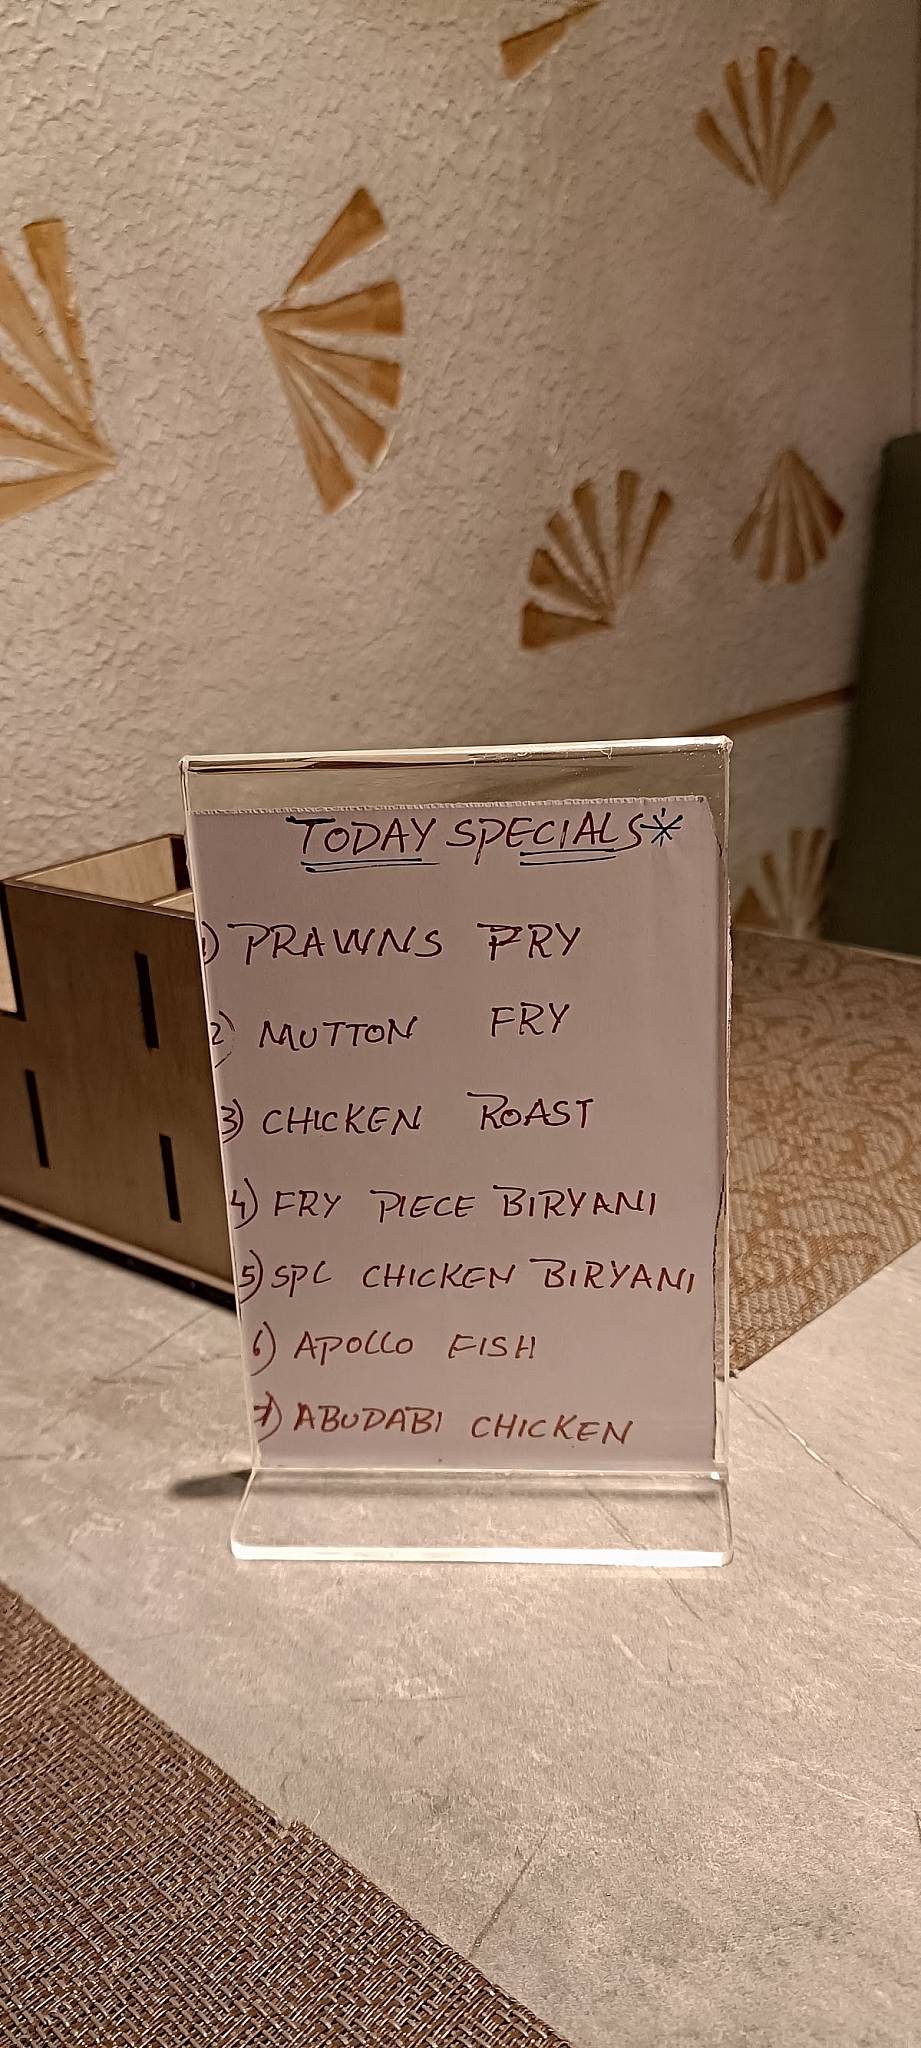 TODAY SPECIALS*
1) PRAWNS FRY
2) MUTTON FRY
3) CHICKEN ROAST
4) FRY PIECE BIRYANI
5) SPL CHICKEN BIRYANI
6) APOLLO FISH
7) ABUDABI CHICKEN